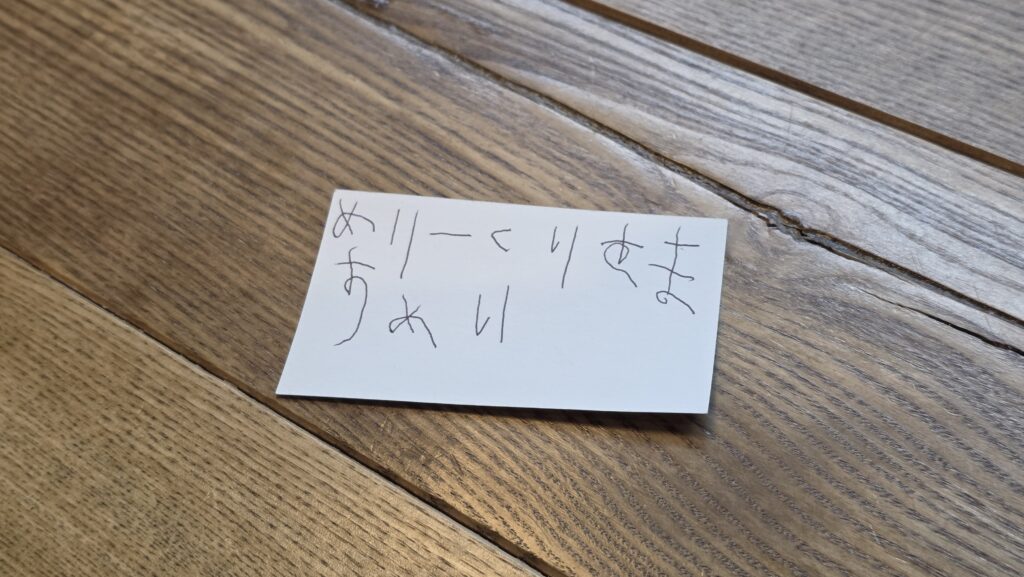 めりーくりすま
すめり